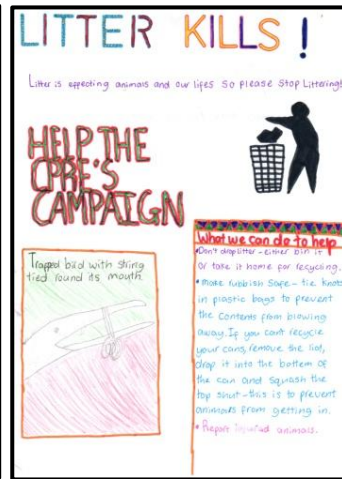 LITTER KILLS!
Litter is effecting animals and our lifes So please Stop Littering!
HELP THE
CPRE'S
CAMPAIGN
Trapped bird with string
tied round its mouth.
What we can do to help
• Don't drop litter - either bin it
or take it home for recycling.
• make rubbish safe - tie knots
in plastic bags to prevent
the contents from blowing
away. If you cant recycle
your cans, remove the lid,
drop it into the bottom of
the can and squash the
top shut - this is to prevent
animals from getting in.
• Report injured animals.